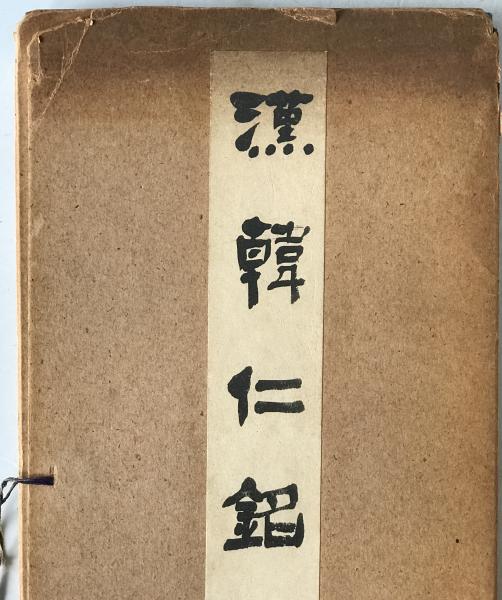 漢韓仁銘